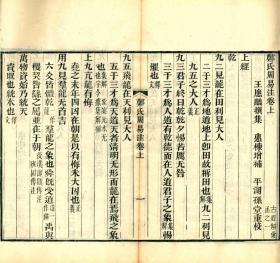 鄭氏周易注卷上
王應麟撰集 惠棟增補 平湖孫堂重校
上經
乾
九二見龍在田利見大人
二于三才為地道地上即田故稱田也 九二利見
九五之大人
九三君子終日乾乾夕惕若厲无咎
三于三才為人道有乾德而在人道君子之象
鄭氏周易注卷上
九五飛龍在天利見大人
五于三才為天道天者清明无形而龍在焉飛之象
上九亢龍有悔
堯之末年四凶在朝是以有悔未大凶也
用九見羣龍无首吉
六爻皆體乾羣龍之象也舜既受禪 禹與
稷契咎繇之屬並在于朝
萬物資始乃統天
資取也統本也